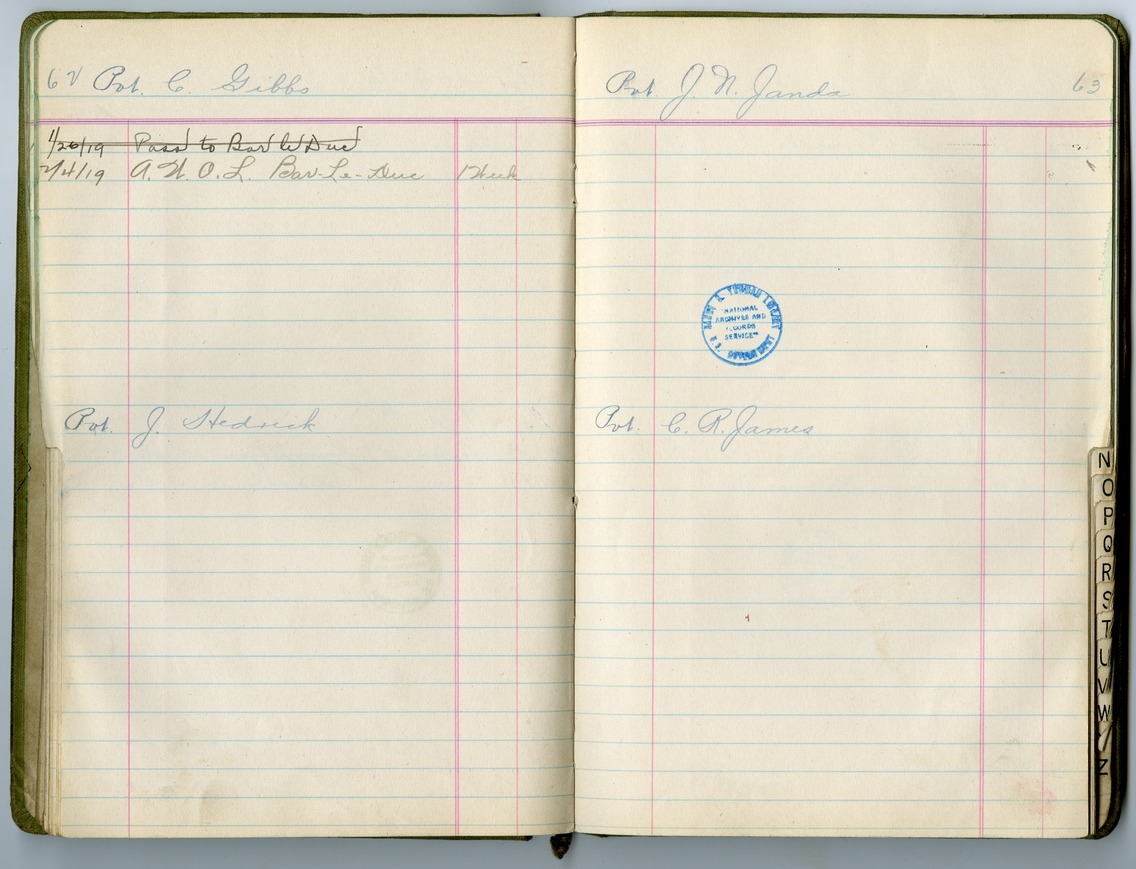 62 Pvt. C. Gibbs
1/26/19 Pass to Bar le Duc
2/4/19 A.W.O.L. Bar-Le-Duc 1 Week
Pvt. J. Hedrick
Pvt. J. N. Janda 63
HARRY S. TRUMAN LIBRARY
NATIONAL
ARCHIVES AND
RECORDS
SERVICE
U.S. GOVERNMENT
Pvt. C. R. James
N
O
P
Q
R
S
T
U
V
W
Z